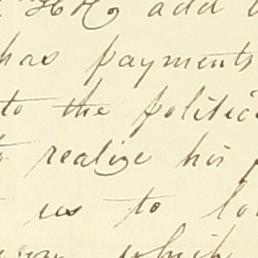 add
has payments
to the politic
to realize his
us to lo
which